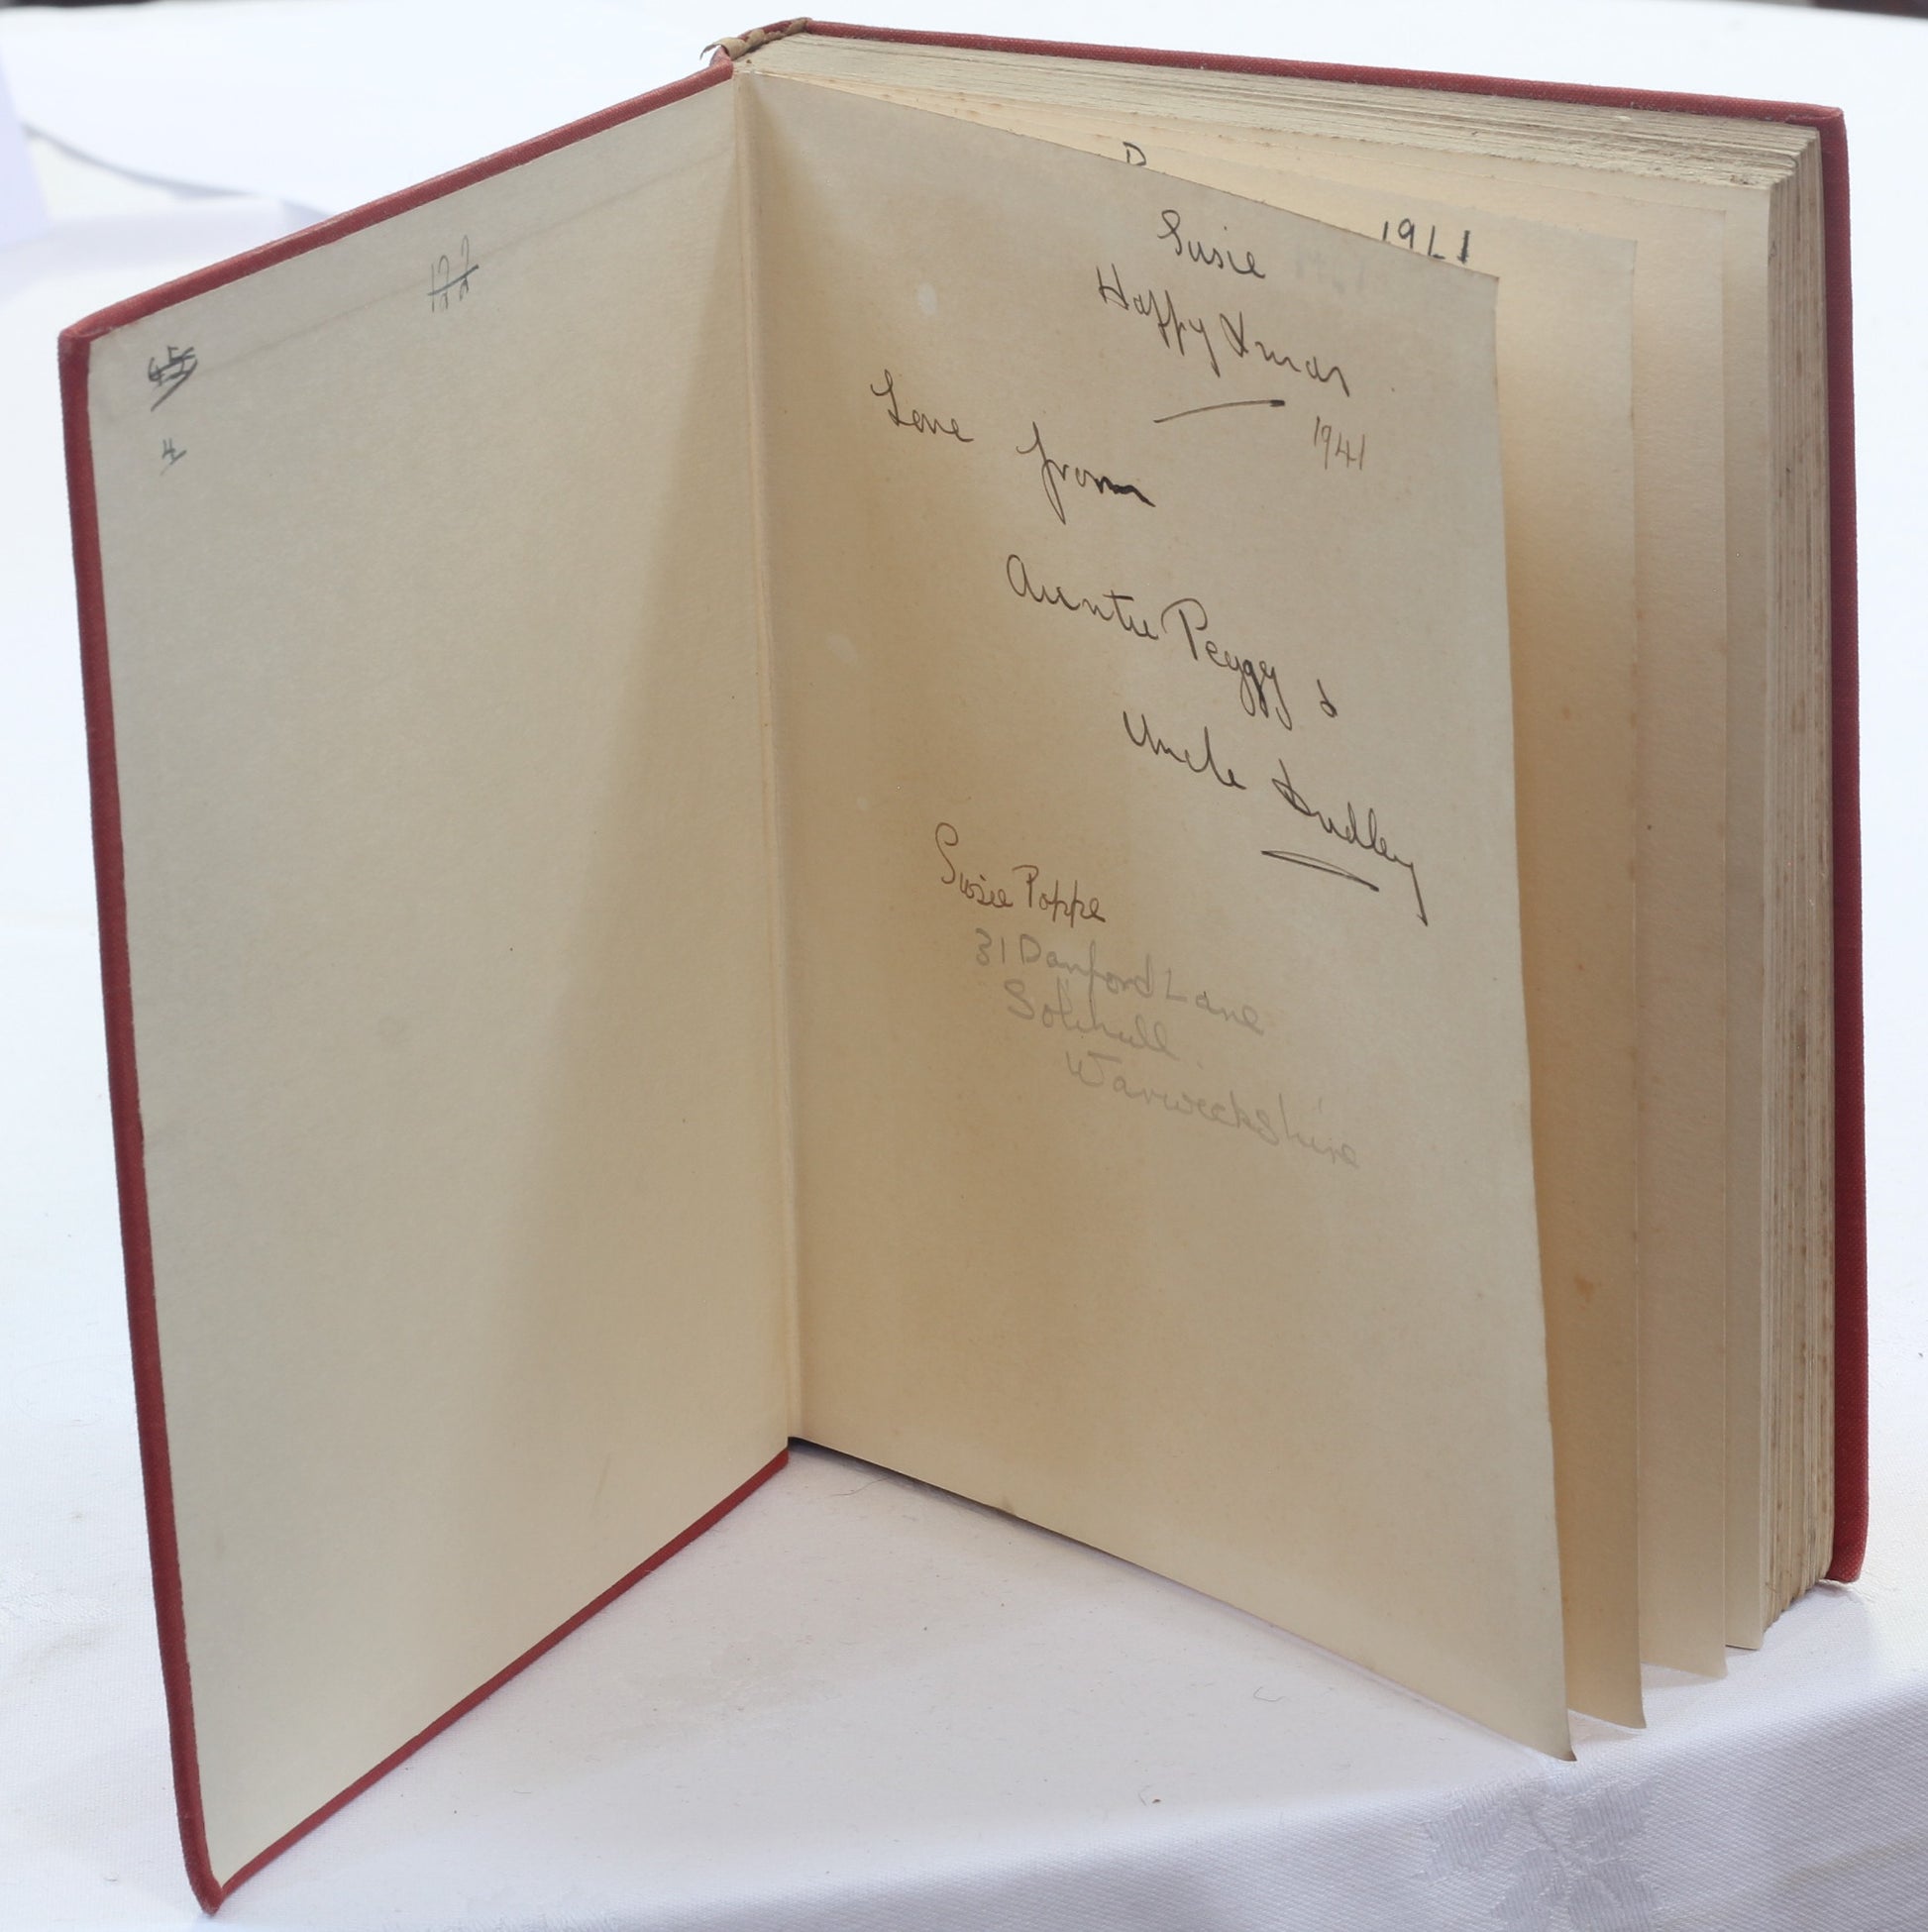 Susie
Happy Xmas
1941
Love from
Auntie Peggy &
Uncle Dudley
Susie Poppe
31 Danford Lane
Solihull
Warwickshire
4